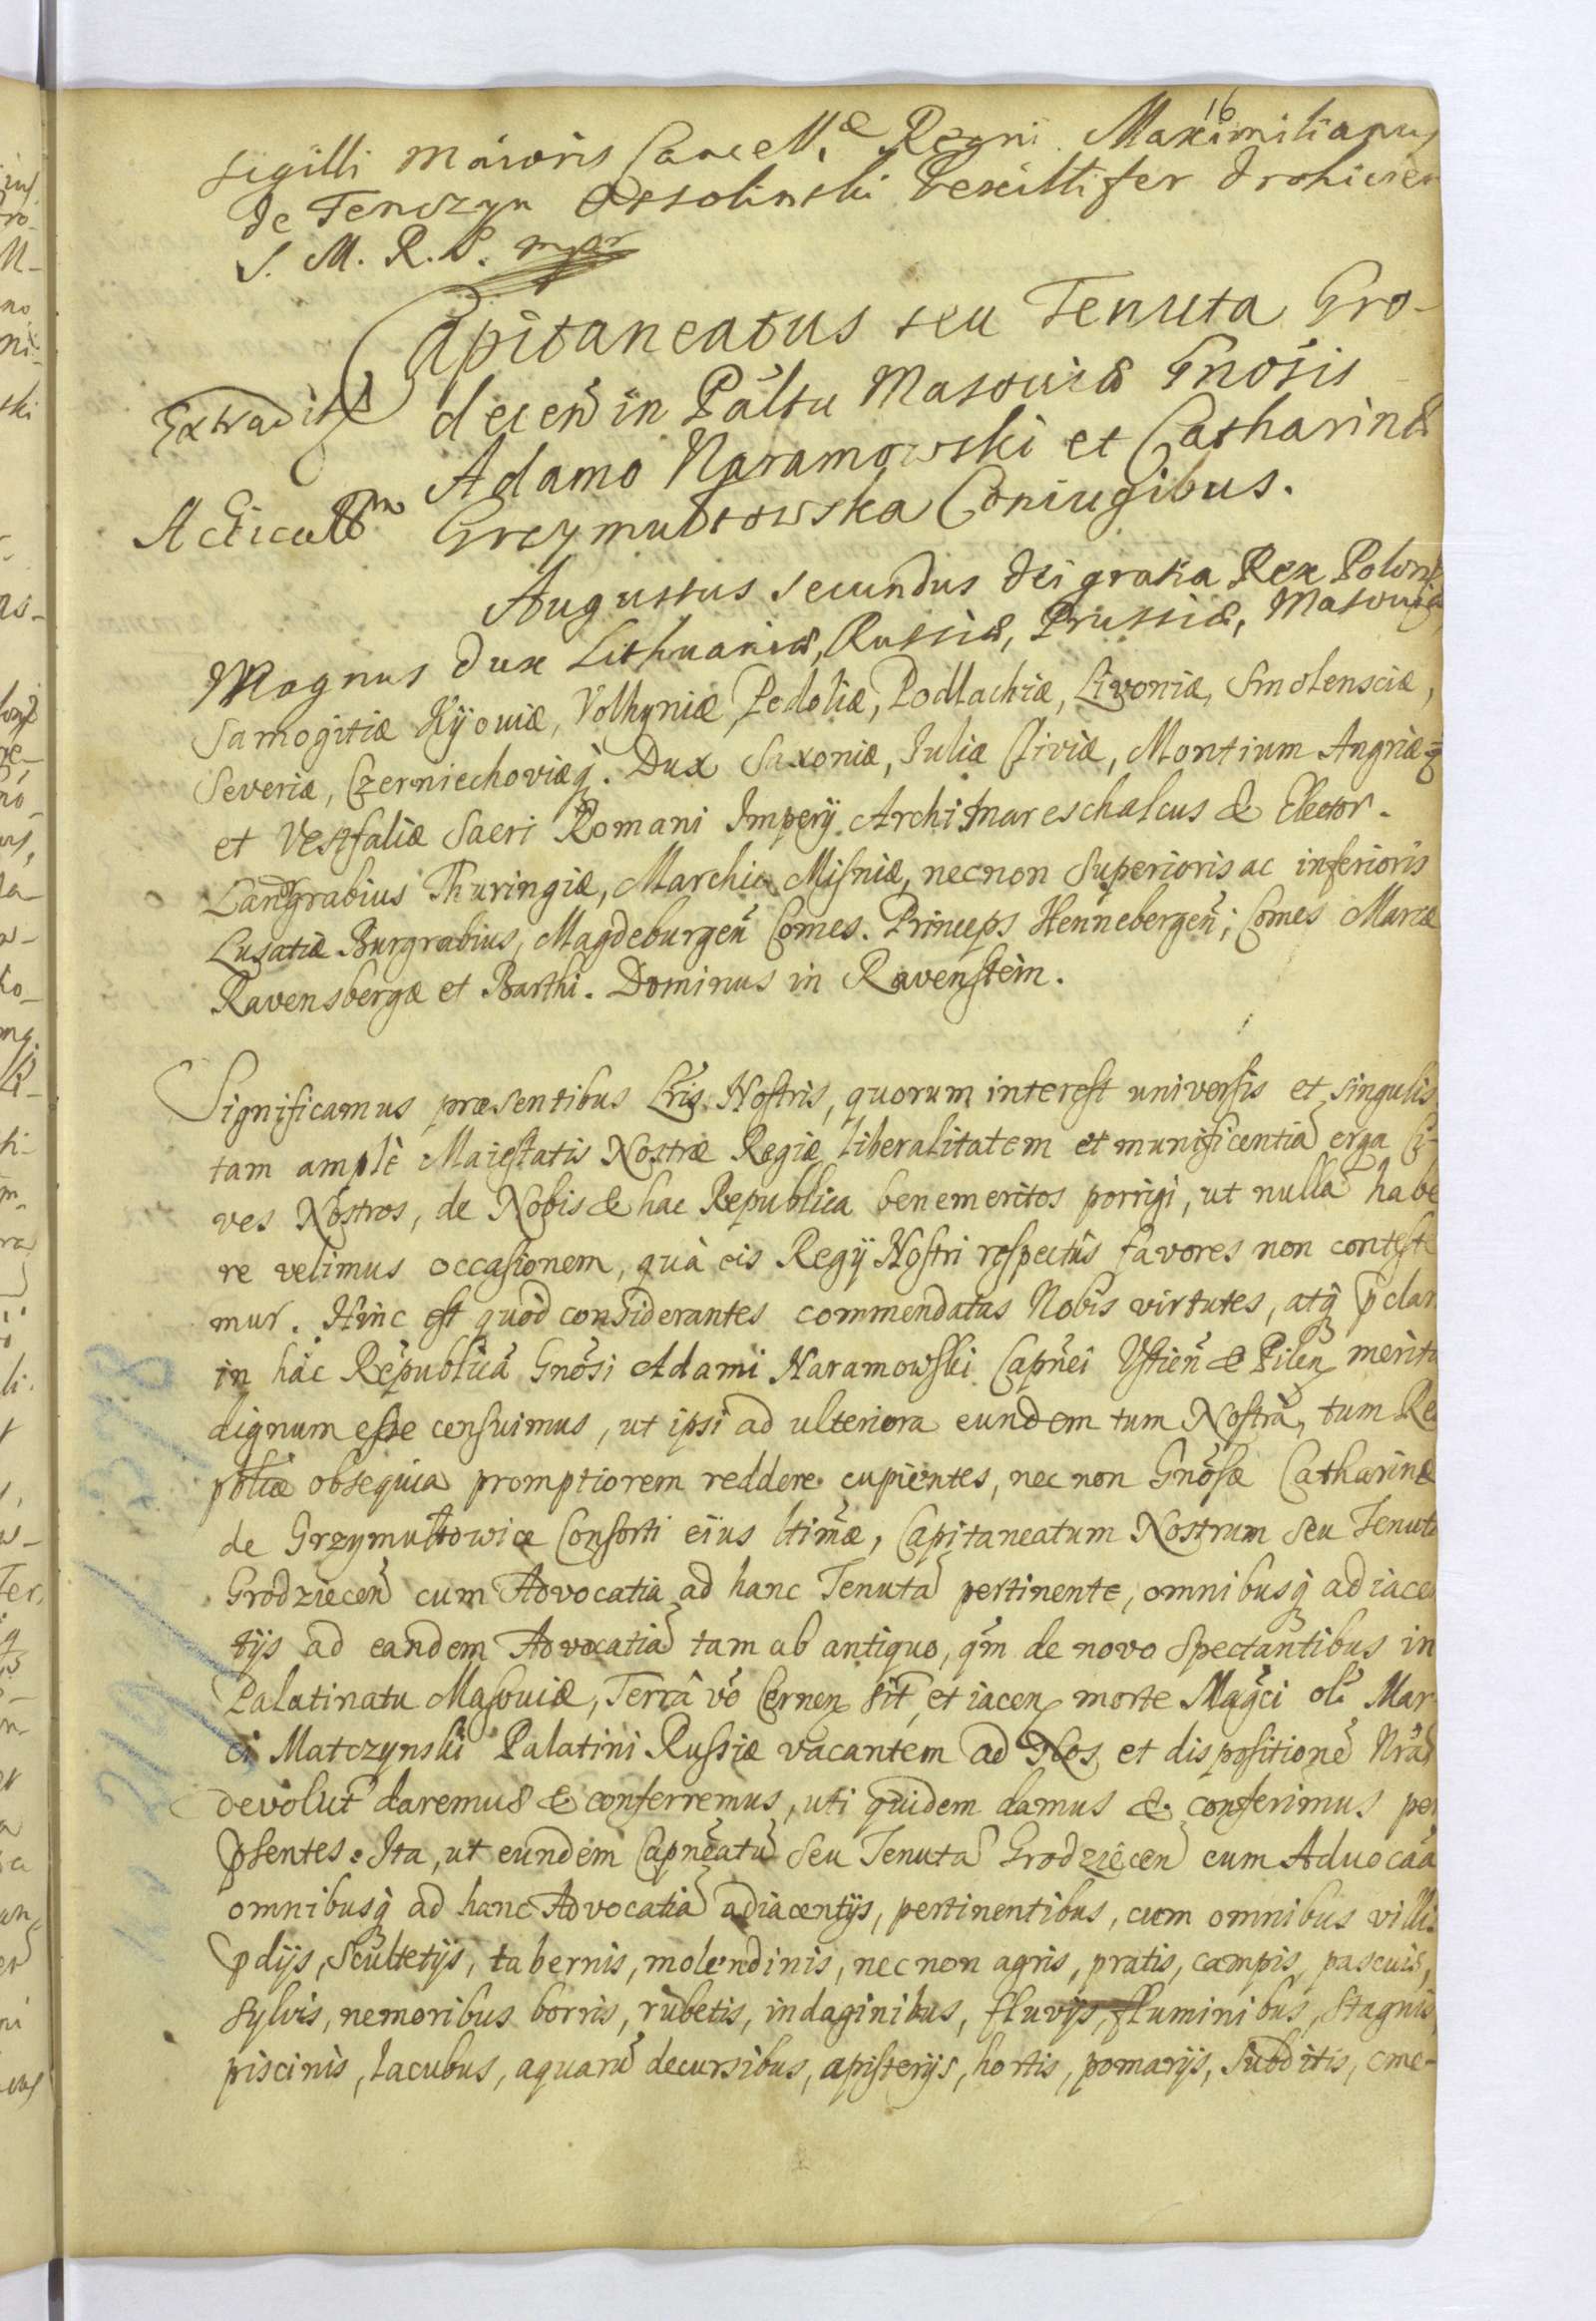 16
sigilli maioris Cancell.æ Regni Maximilianus
de Tenczyn Ossolinski Vexillifer Drohicien
S. M. R. S. mpr
Capitaneatus seu Tenuta Gro-
Extradit
decen̄ in Pal̃tu Masoviæ Gn̄osis
Adamo Naramowski et Catharinæ
Acticat
Grzymułtowska Coniugibus.
Augustus Secundus Dei gratia Rex Poloniæ
Magnus Dux Lithuaniæ, Russiæ, Prussiæ, Masoviæ
Samogitiæ Kijoviæ, Volhyniæ Podoliæ, Podlachiæ, Livoniæ, Smolensciæ,
Severiæ, Czerniechoviæq̃. Dux Saxoniæ, Juliæ Cliviæ, Montium Angriæ q̃
et Vestfaliæ Sacri Romani Imperij Archimareschalcus & Elector.
Landgrabius Thuringiæ, Marchio Misniæ, necnon Superioris ac inferioris
Lusatiæ Burgrabius, Magdeburgen̄ Comes. Princeps Hennebergen̄; Comes Marcæ
Ravensbergæ et Barthi. Dominus in Ravenstein.
Significamus præsentibus Lr̃is Nostris, quorum interest universis et singulis
tam amplè Maiestatis Nostræ Regiæ liberalitatem et munificentiã erga Ci-
ves Nostros, de Nobis & hac Republica benemeritos porrigi, ut nullã habe
re velimus occasionem, quà eis Regij Nostri respectûs favores non conteste
mur. Hinc est quòd considerantes commendatas Nobis virtutes, atq̃ p̃clar
in hâc Republicâ Gn̄osi Adami Naramowski Capn̄ei Ustien̄ & Pilen̄ merita
dignum esse censuimus, ut ipsi ad ulteriora eundem tum Nostra, tum Re
pblicæ obsequia promptiorem reddere cupientes, nec non Gn̄osæ Catharinæ
de Grzymułtowice Consorti eius ltimæ, Capitaneatum Nostrum seu Tenutã
Grodziecen̄ cum Advocatia ad hanc Tenutã pertinente, omnibusq̃ adiacen
tijs ad eandem Advocatiã tam ab antiquo, qm̃ de novo Spectantibus in
Palatinatu Masoviæ, Terrâ vo Cernen̄ sit̃ et iacen̄ morte Magc̃i ol̃i Mar
ci Matczynski Palatini Russiæ vacantem ad Nos et dispositionẽ Nrãm
devolut̃ daremus & conferremus, uti quidem damus & conferimus per
p̃sentes. Ita, ut eundem Capn̄eatũ seu Tenutã Grodziecen̄ cum Advocãa
omnibusq̃ ad hanc Advocatiã adiacentijs, pertinentibus, cum omnibus villis
p̃dijs, Scultetijs, tabernis, molendinis, necnon agris, pratis, campis, pascuis,
sylvis, nemoribus borris, rubetis, indaginibus, fluvijs, fluminibus, stagnis,
piscinis, lacubus, aquarũ decursibus, apisterijs, hortis, pomarijs, subditis, cme-